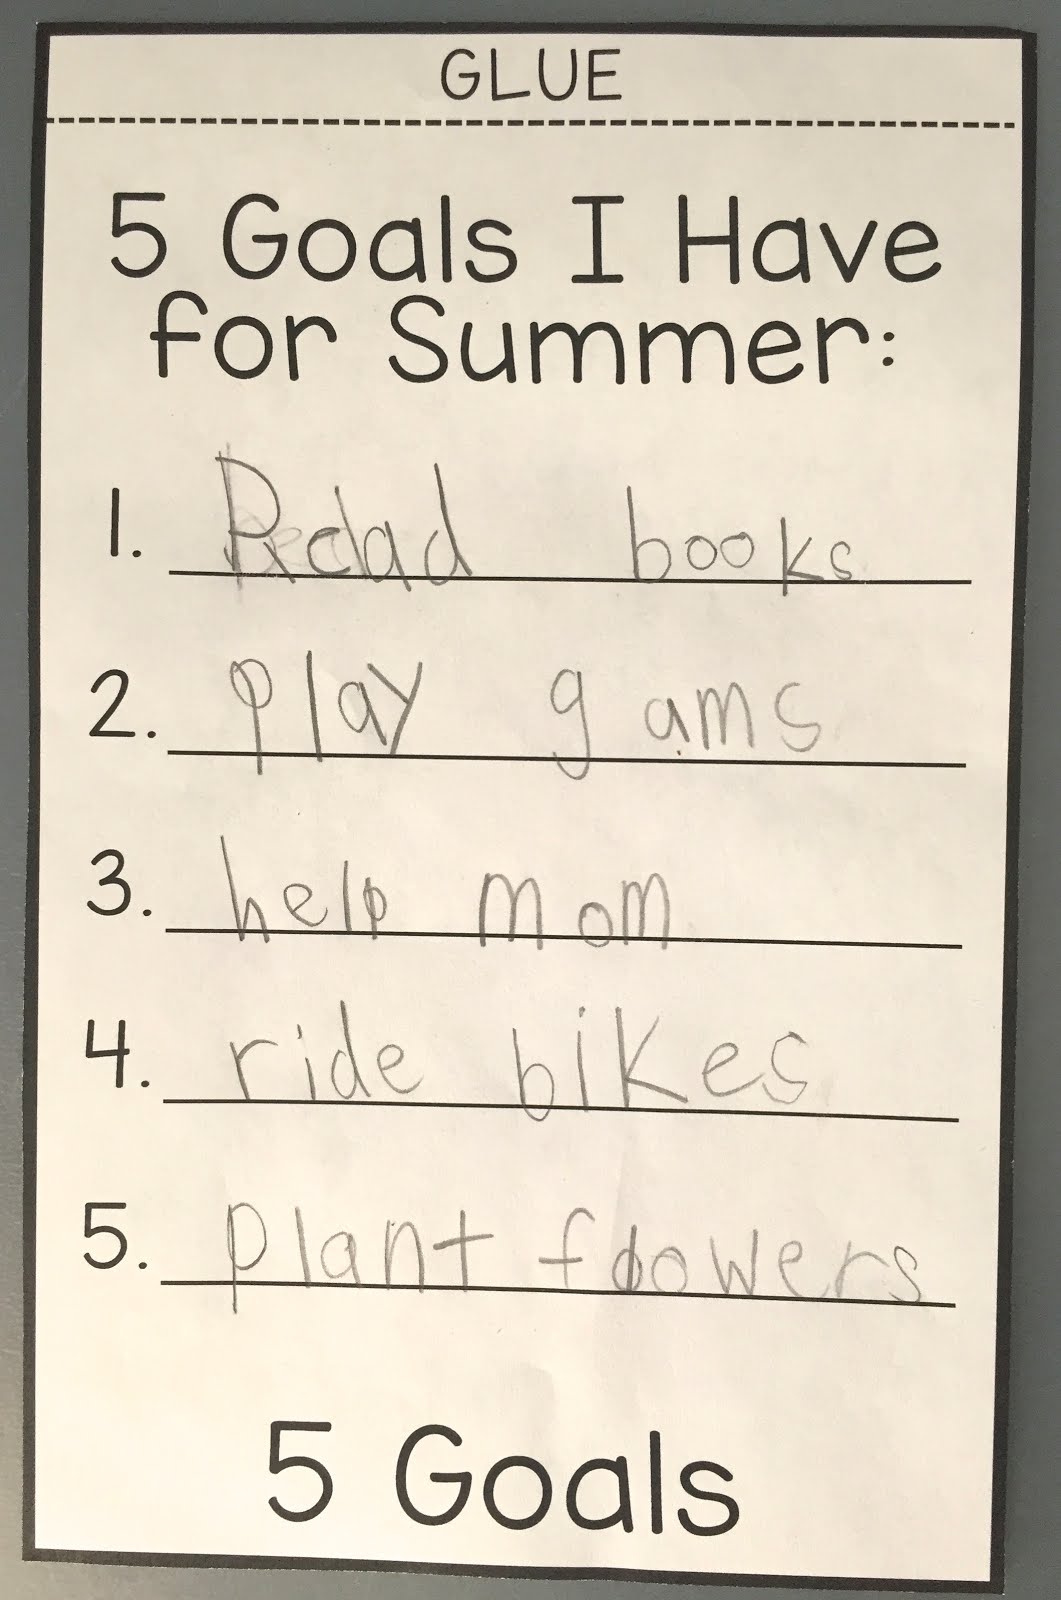 GLUE
5 Goals I Have
for Summer:
1. Read books
2. play gams
3. help mom
4. ride bikes
5. plant flowers
5 Goals